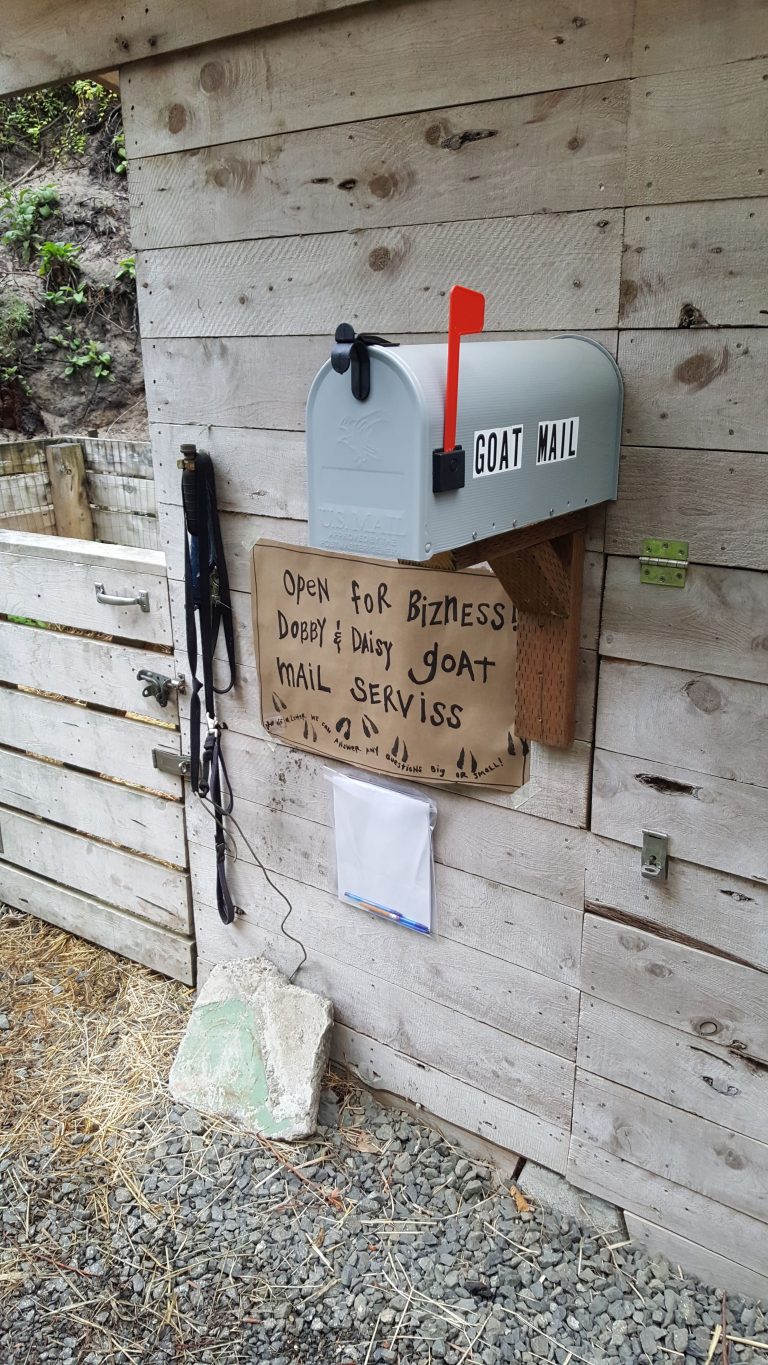 GOAT MAIL
U.S. MAIL
OPEN FOR BIZNESS!
DOBBY & DAISY GOAT
MAIL SERVISS
LETTER, WE CAN ANSWER ANY QUESTIONS BIG OR SMALL!